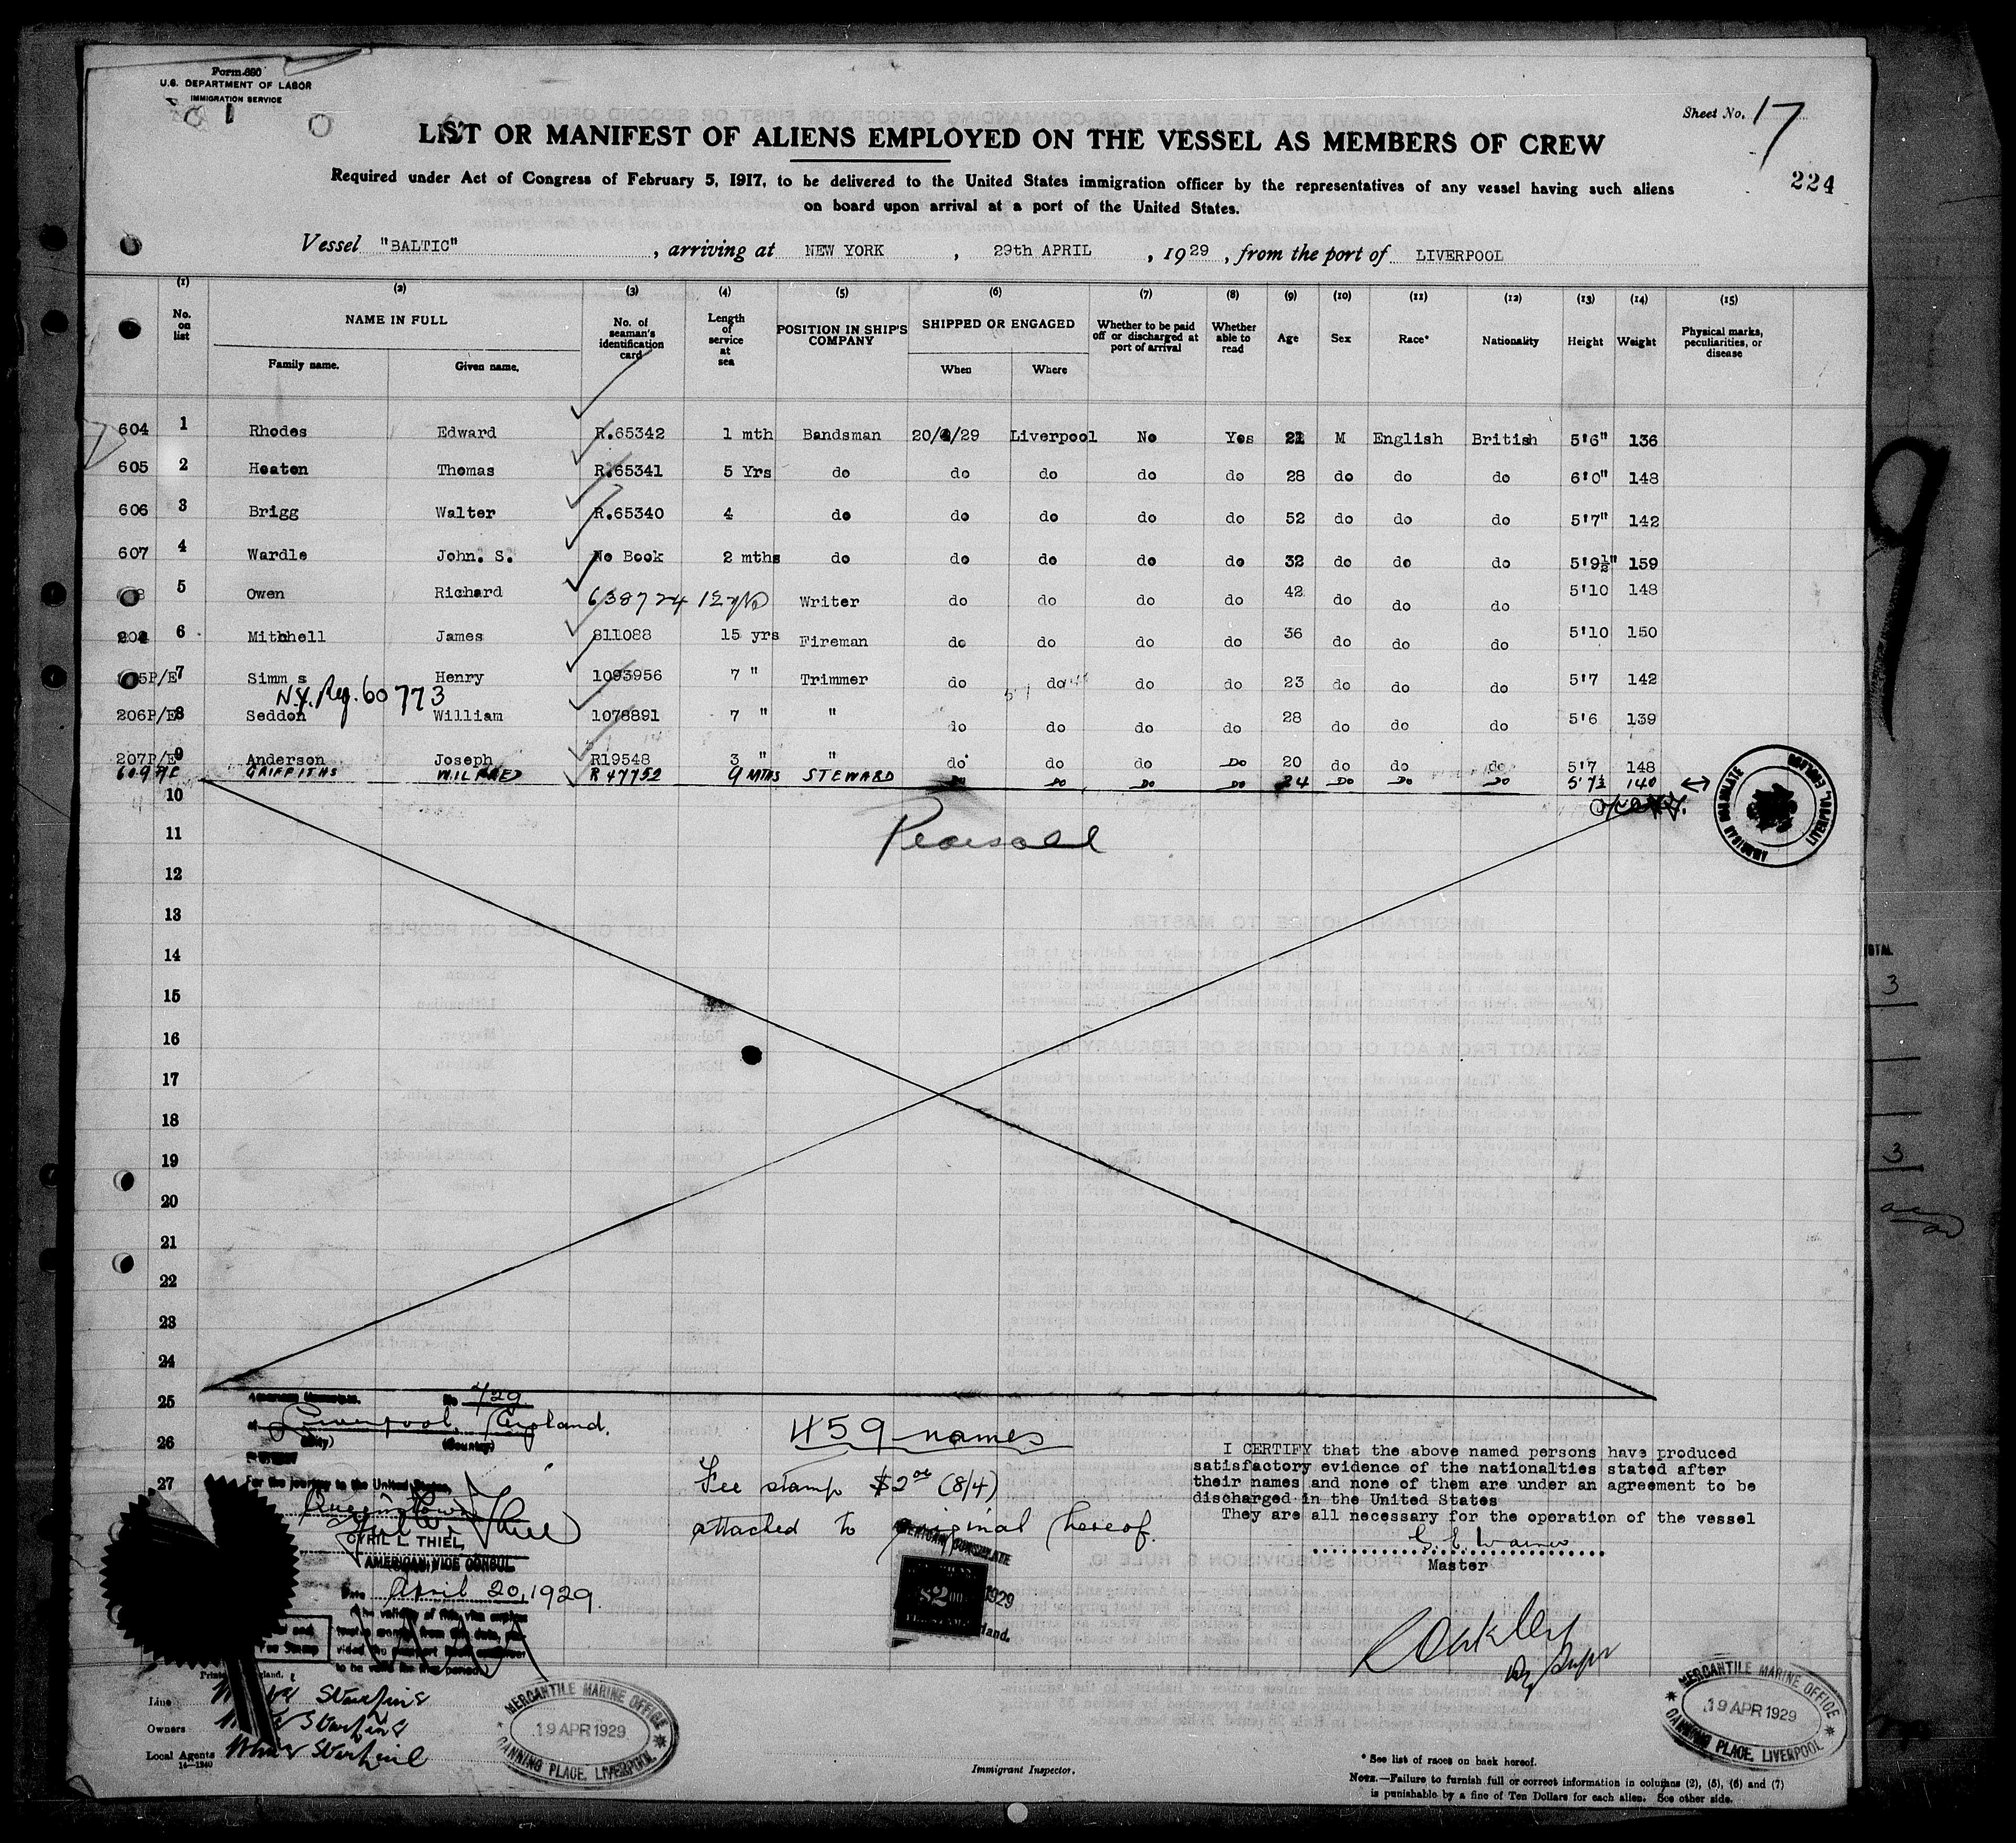 Form 680
U.S. DEPARTMENT OF LABOR
IMMIGRATION SERVICE
Sheet No. 17
224
LIST OR MANIFEST OF ALIENS EMPLOYED ON THE VESSEL AS MEMBERS OF CREW
Required under Act of Congress of February 5, 1917, to be delivered to the United States immigration officer by the representatives of any vessel having such aliens
on board upon arrival at a port of the United States.
Vessel "BALTIC", arriving at NEW YORK, 29th APRIL, 1929, from the port of LIVERPOOL
(1) (2) (3) (4) (5) (6) (7) (8) (9) (10) (11) (12) (13) (14) (15)
No. on list NAME IN FULL Family name. Given name. No. of seaman's identification card Length of service at sea POSITION IN SHIP'S COMPANY SHIPPED OR ENGAGED When Where Whether to be paid off or discharged at port of arrival Whether able to read Age Sex Race* Nationality Height Weight Physical marks, peculiarities, or disease
604 1 Rhodes Edward R.65342 1 mth Bandsman 20/4/29 Liverpool No Yes 21 M English British 5'6" 136
605 2 Heaton Thomas R.65341 5 Yrs do do do do do 28 do do do 6'0" 148
606 3 Brigg Walter R.65340 4 do do do do do 52 do do do 5'7" 142
607 4 Wardle John. S. No Book 2 mths do do do do do 32 do do do 5'9½" 159
5 Owen Richard 638724 Writer do do do do 42 do do do 5'10 148
6 Mitchell James 811088 15 yrs Fireman do do do do 36 do do do 5'10 150
5P/E 7 Simm s Henry 1093956 7 " Trimmer do do do do 23 do do do 5'7 142
N.Y. Reg. 60773
206P/E 8 Seddon William 1078891 7 " " do do do do 28 do do do 5'6 139
207P/E 9 Anderson Joseph R19548 3 " " do do do Do 20 do do do 5'7 148
609 GRIFFITHS WILFRED R 47752 9 MTHS STEWARD DO DO DO DO 24 DO DO DO 5'7½ 140
10
AMERICAN CONSULATE LIVERPOOL, ENGLAND
11 Pearsall
12
13
14
15
16
17
18
19
20
21
22
23
24
25
American Consulate No 729
at Liverpool, England.
(City) (Country)
26
459 names
27
For the journey to the United States,
Fee stamp $2.00 (8/4)
attached to original hereof.
Queenstown
CYRIL L. THIEL,
AMERICAN VICE CONSUL
Date April 20, 1929.
The validity of this visa expires
twelve months from this date,
to be valid for that period
AMERICAN CONSULATE
$2.00
1929
I CERTIFY that the above named persons have produced
satisfactory evidence of the nationalties stated after
their names and none of them are under an agreement to be
discharged in the United States
They are all necessary for the operation of the vessel
Master
Line White Star Line
Owners White Star Line
Local Agents White Star Line
14—1240
MERCANTILE MARINE OFFICE
19 APR 1929
CANNING PLACE. LIVERPOOL
Immigrant Inspector.
MERCANTILE MARINE OFFICE
19 APR 1929
CANNING PLACE. LIVERPOOL
* See list of races on back hereof.
NOTE.—Failure to furnish full or correct information in columns (2), (5), (6) and (7)
is punishable by a fine of Ten Dollars for each alien. See other side.
9
TOTAL
3
3